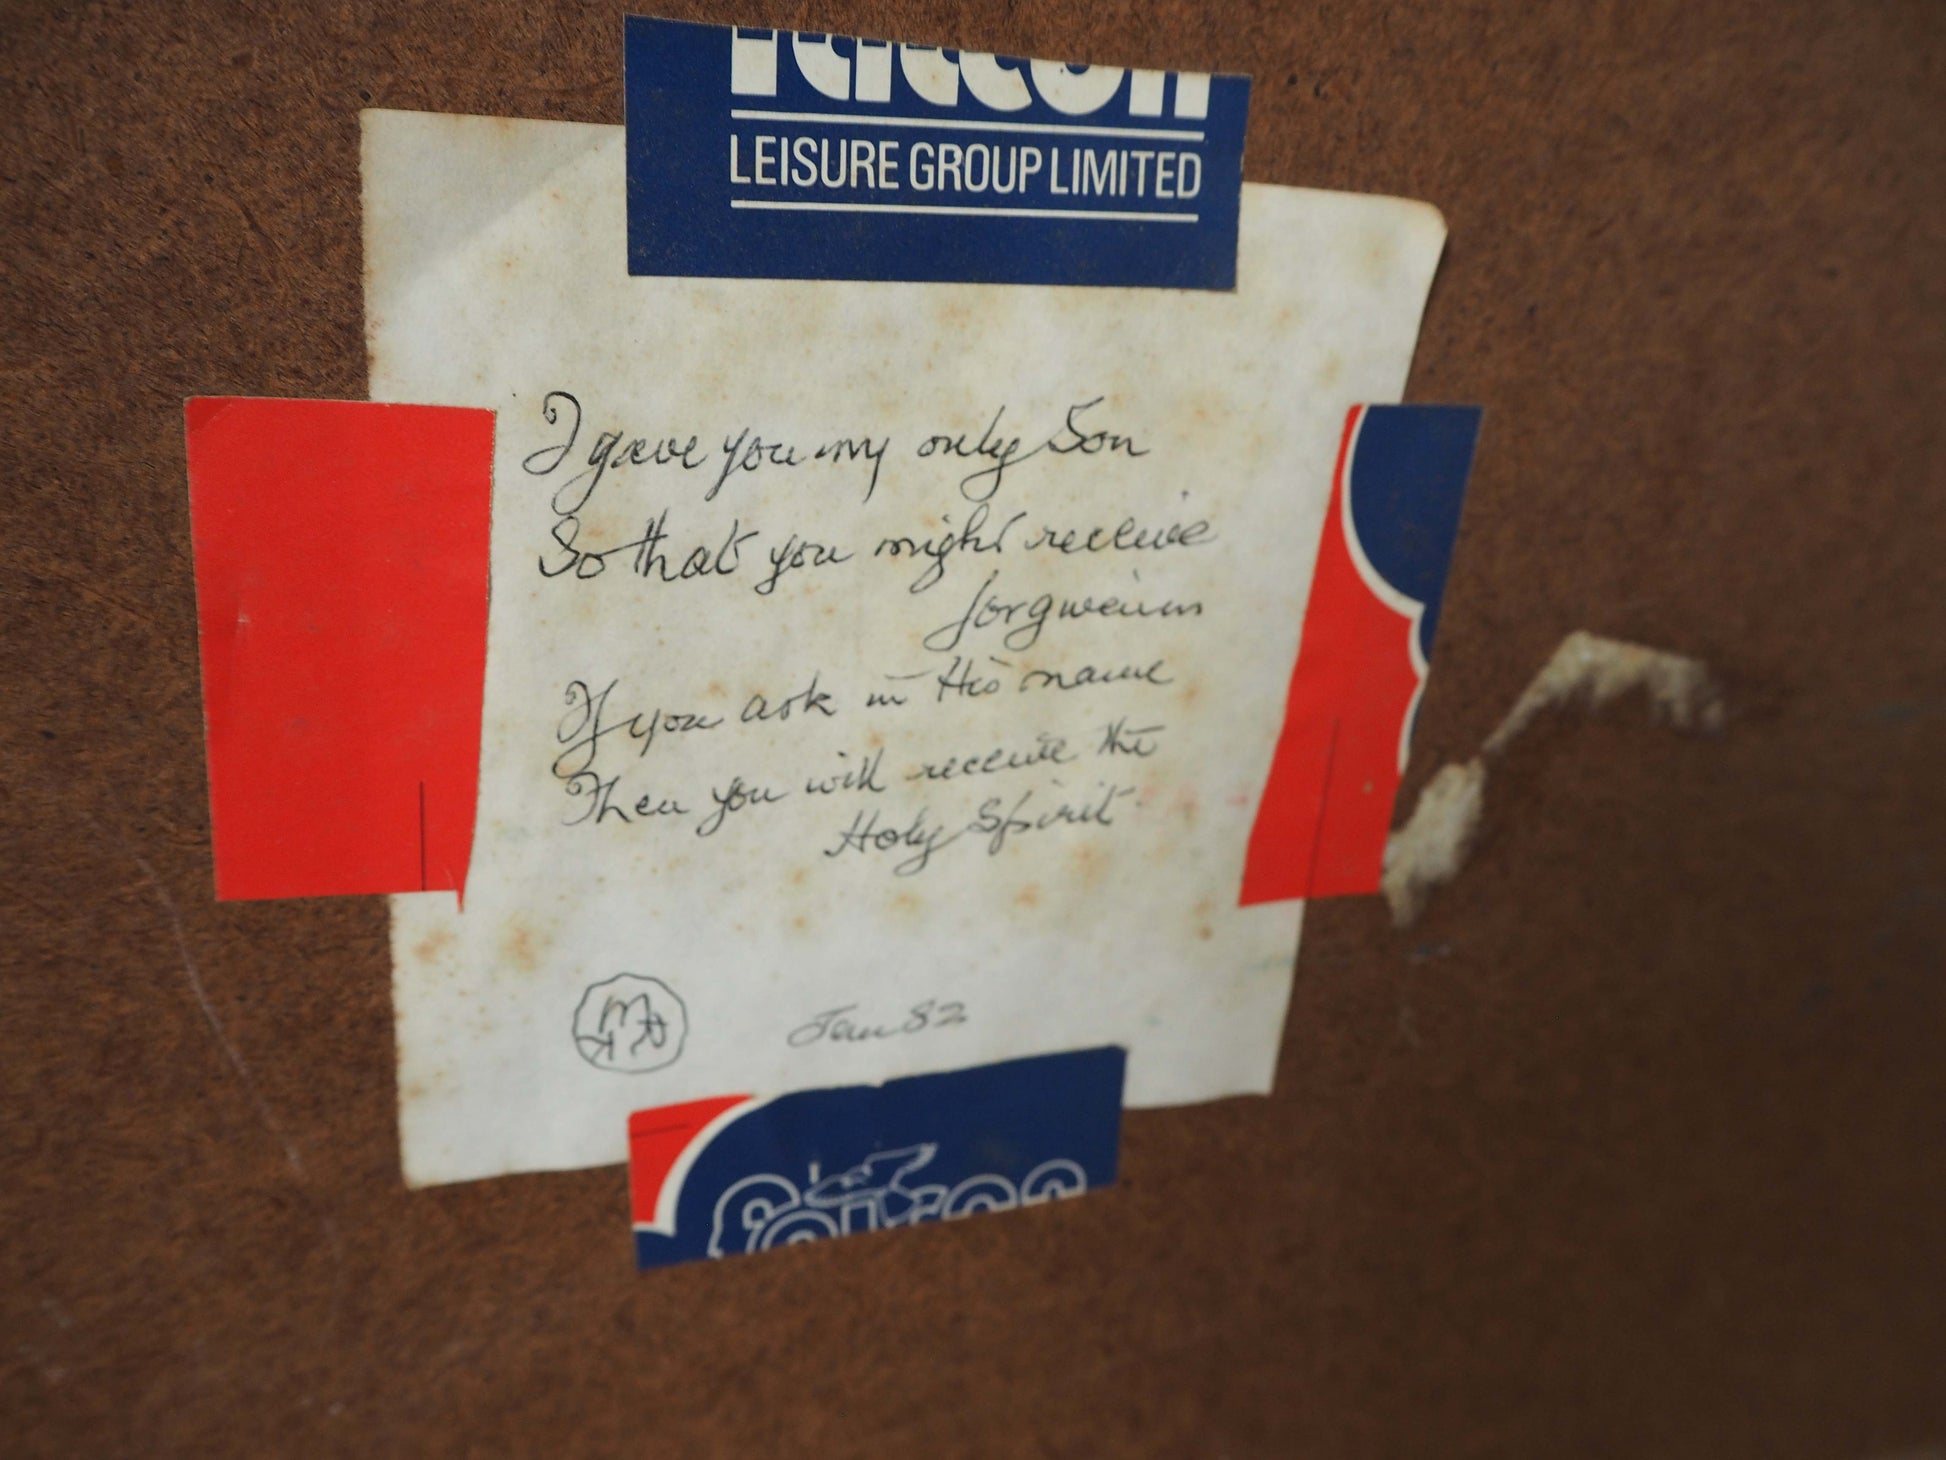 LEISURE GROUP LIMITED
I gave you my only Son
So that you might receive
forgiveness
If you ask in His name
Then you will receive the
Holy Spirit
Jan 82